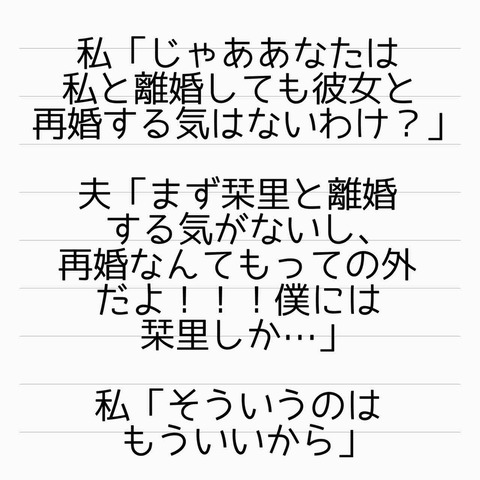 私「じゃああなたは
私と離婚しても彼女と
再婚する気はないわけ？」
夫「まず栞里と離婚
する気がないし、
再婚なんてもっての外
だよ！！！僕には
栞里しか…」
私「そういうのは
もういいから」